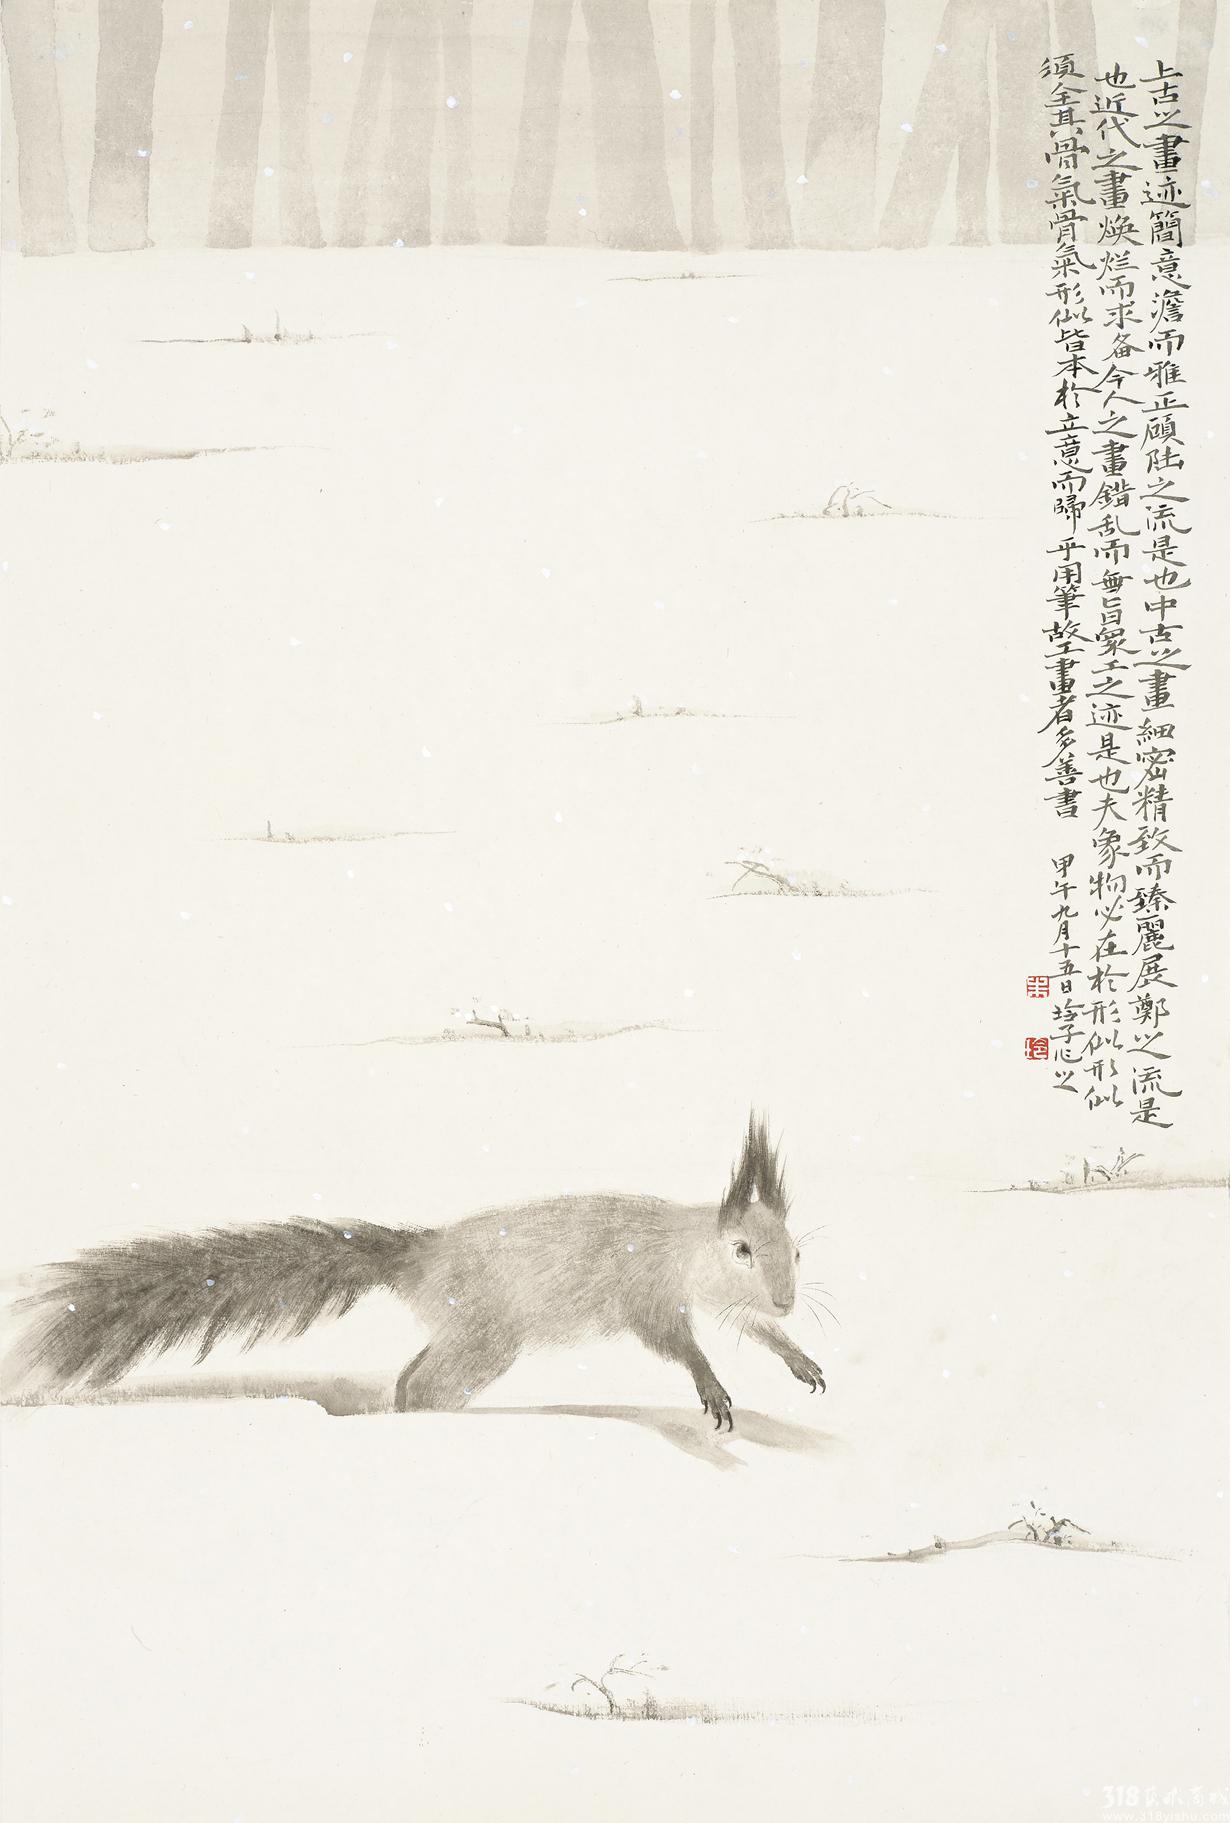 上古之畫迹簡意澹而雅正顧陸之流是也中古之畫細密精致而臻麗展鄭之流是
也近代之畫煥烂而求备今人之畫錯乱而無旨眾工之迹是也夫象物必在於形似形似
須全其骨氣骨氣形似皆本於立意而歸乎用筆故工畫者多善書
甲午九月十五日玲子作之
朱
玲
318艺术商城
www.318yishu.com